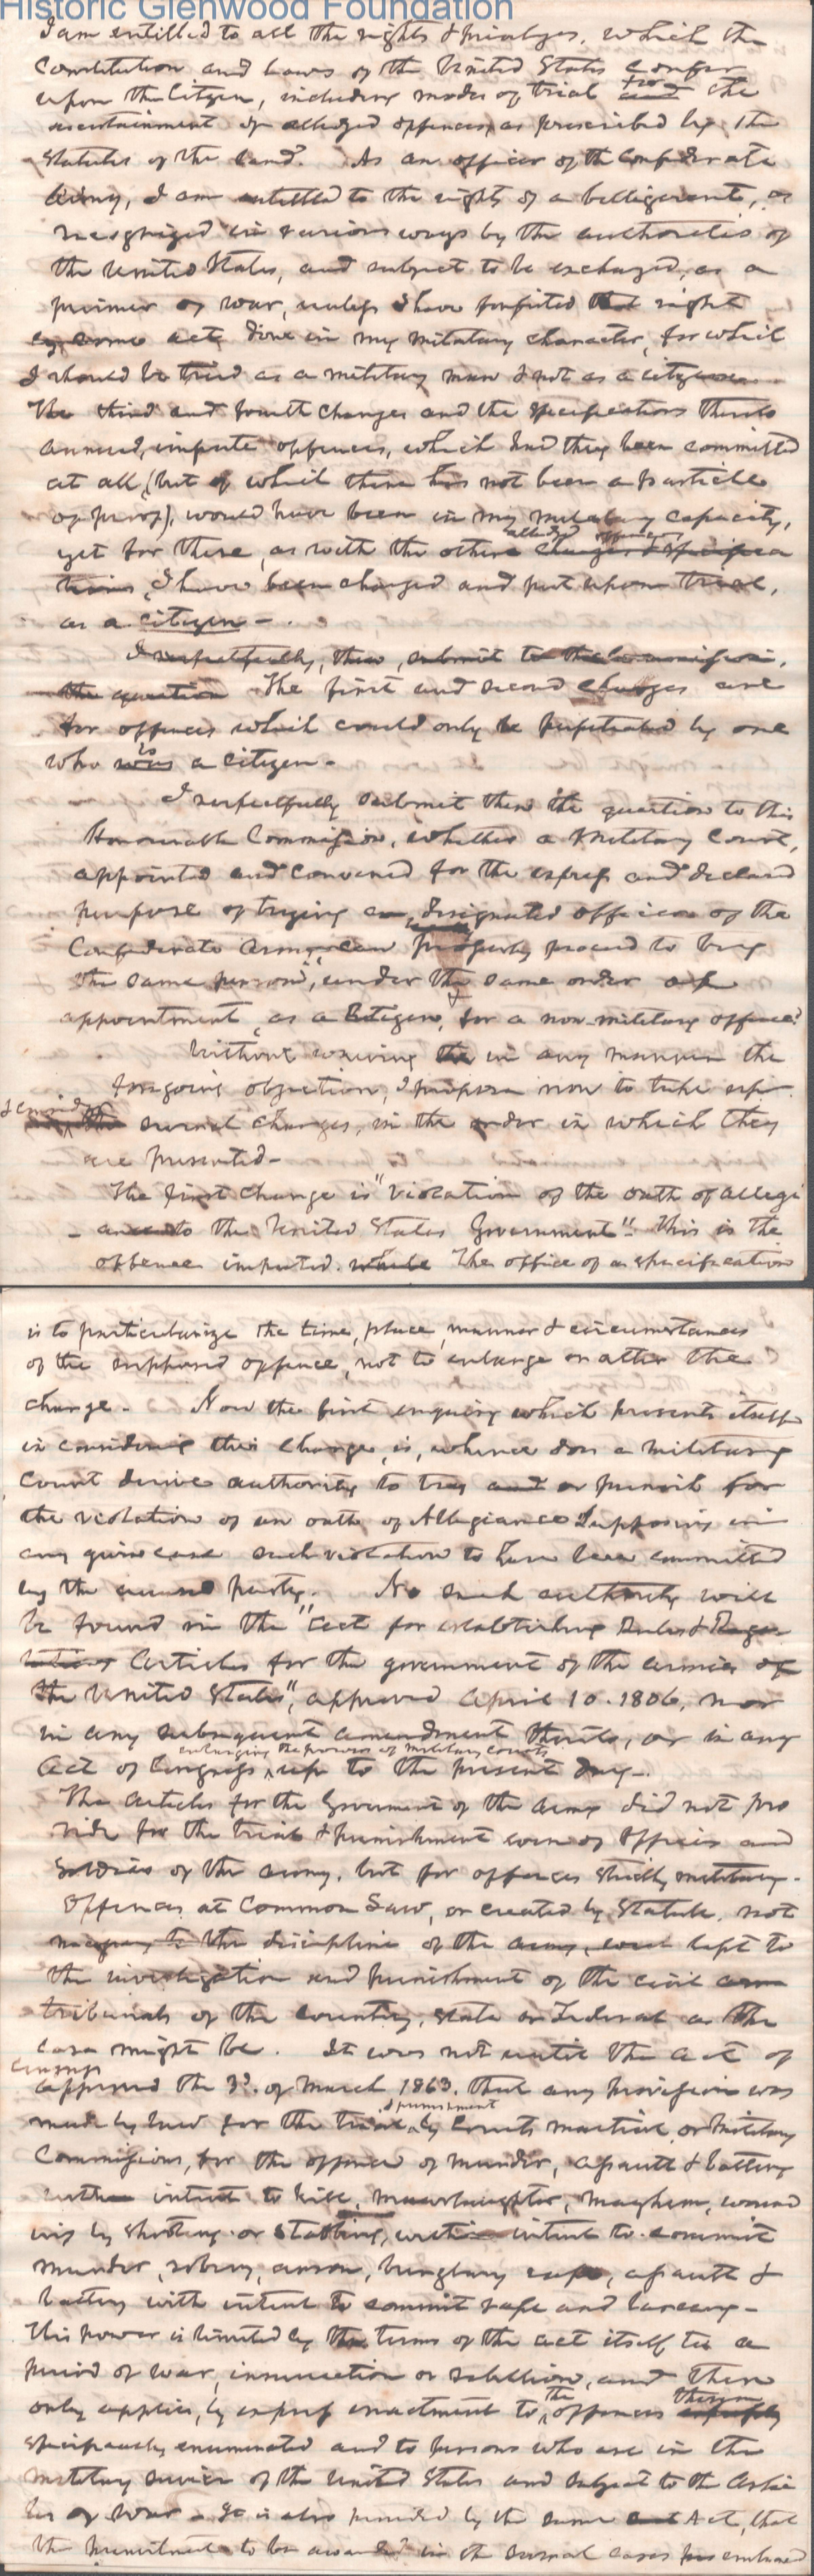 Historic Glenwood Foundation
I am entitled to all the rights & privileges, which the
Constitution and Laws of the United States confer
upon the Citizen, including modes of trial and for the
ascertainment of alledged offences, as prescribed by the
Statutes of the land. As an officer of the Confederate
Army, I am entitled to the rights of a belligerent, as
recognized in various ways by the authorities of
the United States, and subject to be exchanged, as a
prisoner of war, unless I have forfeited that right
by some act, done in my military character, for which
I should be tried as a military man & not as a citizen.
The third and fourth Charges and the specifications thereto
annexed, impute offences, which had they been committed
at all, (but of which there has not been a particle
of proof), would have been in my military capacity,
yet for these, as with the others alledged offences charges & specifica
tions, I have been charged and put upon trial,
as a citizen -
I respectfully, then, submit to the Commission,
the question The first and second charges are
for offences which could only be perpetrated by one
who was is a citizen -
I respectfully submit then the question to this
Honourable Commission, whether a Military Court,
appointed and convened for the express and declared
purpose of trying a designated officer of the
Confederate Army, can properly proceed to try
the same person, under the same order of
appointment, as a Citizen, & for a non-military offence?
Without waiving the in any manner the
foregoing objection, I propose now to take up
& consider the several charges, in the order in which they
are presented -
The first Charge is "violation of the oath of allegi
- ance to the United States Government". This is the
offence imputed. while The office of a specification
is to particularize the time, place, manner & circumstances
of the supposed offence, not to enlarge or alter the
charge - Now the first enquiry which presents itself
in considering this Charge, is, whence does a military
Court derive authority to try and or punish for
the violation of an oath of Allegiance Supposing in
any given case such violation to have been committed
by the accused party. No such authority will
be found in the "Act for establishing Rules & Regu
lations Articles for the government of the armies of
the United States", approved April 10. 1806, nor
in any subsequent amendment thereto, or in any
Act of Congress, enlarging the powers of Military Courts up to the present day -
The Articles for the Government of the Army did not pro
vide for the trial & punishment even of Officers and
Soldiers of the army, but for offences strictly military -
Offences at Common Law, or created by Statute, not
necessary to the discipline of the army, were left to
the investigation and punishment of the civil
tribunals of the country, State or Federal as the
case might be. It was not until the act of
Congress approved the 3d. of March 1863. that any provision was
made by law for the trial & punishment by Courts martial or Military
Commissions, for the offence of murder, assault & battery
with intent to kill, manslaughter, mayhem, wound
ing by shooting or stabbing, with intent to commit
murder, robbery, arson, burglary rape, assault &
battery with intent to commit rape and larceny -
This power is limited by the terms of the act itself to a
period of war, insurrection or rebellion, and then
only applies, by express enactment to the offences therein expressly
specifically enumerated and to persons who are in the
military service of the United States and subject to the Artic
les of War - It is also provided by the same Act, that
the punishment to be awarded in the several cases embraced